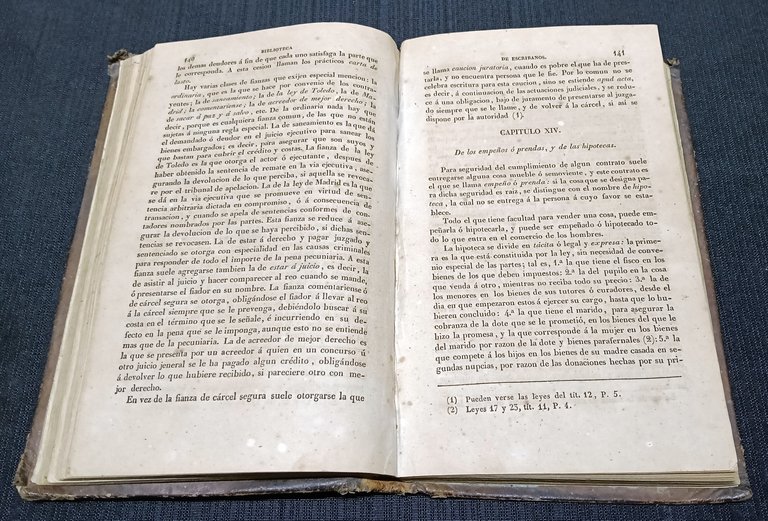 140
BIBLIOTECA
los demas deudores á fin de que cada uno satisfaga la parte que
le corresponda. A esta cesion llaman los prácticos carta de
lasto.
Hay varias clases de fianzas que exijen especial mencion: la
ordinaria, que es la que se hace por convenio de los contra-
yentes; la de saneamiento; la de la ley de Toledo, la de Ma-
drid; la comentariense; la de acreedor de mejor derecho; la
de sacar á paz y á salvo, etc. De la ordinaria nada hay que
decir, porque es cualquiera fianza comun, de las que no están
sujetas á ninguna regla especial. La de saneamiento es la que dá
el demandado ó deudor en el juicio ejecutivo para sanear los
bienes embargados; es decir, para asegurar que son suyos y
que bastan para cubrir el crédito y costas. La fianza de la ley
de Toledo es la que otorga el actor ó ejecutante, despues de
haber obtenido la sentencia de remate en la via ejecutiva, ase-
gurando la devolucion de lo que perciba, si aquella se revoca-
re por el tribunal de apelacion. La de la ley de Madrid es la que
se dá en la via ejecutiva que se promueve en virtud de sen-
tencia arbitraria dictada en compromiso, ó á consecuencia de
transacion, y cuando se apela de sentencias conformes de con-
tadores nombrados por las partes. Esta fianza se reduce á ase-
gurar la devolucion de lo que se haya percibido, si dichas sen-
tencias se revocasen. La de estar á derecho y pagar juzgado y
sentenciado se otorga con especialidad en las causas criminales
para responder de todo el importe de la pena pecuniaria. A esta
fianza suele agregarse tambien la de estar á juicio, es decir, la
de asistir al juicio y hacer comparecer al reo cuando se mande,
ó presentarse el fiador en su nombre. La fianza comentariense ó
de cárcel segura se otorga, obligándose el fiador á llevar al reo
á la cárcel siempre que se le prevenga, debiéndolo buscar á su
costa en el término que se le señale, é incurriendo en su de-
fecto en la pena que se le imponga, aunque esto no se entiende
mas que de la pecuniaria. La de acreedor de mejor derecho es
la que se presenta por un acreedor á quien en un concurso ú
otro juicio jeneral se le ha pagado algun crédito, obligándose
á devolver lo que hubiere recibido, si pareciere otro con me-
jor derecho.
En vez de la fianza de cárcel segura suele otorgarse la que
DE ESCRIBANOS.
141
se llama caucion juratoria, cuando es pobre el que ha de pres-
tarla, y no encuentra persona que le fie. Por lo comun no se
celebra escritura para esta caucion, sino se estiende apud acta,
es decir, á continuacion de las actuaciones judiciales, y se redu-
ce á una obligacion, bajo de juramento de presentarse al juzga-
do siempre que se le llame, y de volver á la cárcel, si así se
dispone por la autoridad (1).
CAPITULO XIV.
De los empeños ó prendas, y de las hipotecas.
Para seguridad del cumplimiento de algun contrato suele
entregarse alguna cosa mueble ó semoviente, y este contrato es
el que se llama empeño ó prenda: si la cosa que se designa pa-
ra dicha seguridad es raiz, se distingue con el nombre de hipo-
teca, la cual no se entrega á la persona á cuyo favor se esta-
blece.
Todo el que tiene facultad para vender una cosa, puede em-
peñarla ó hipotecarla, y puede ser empeñado ó hipotecado to-
do lo que entra en el comercio de los hombres.
La hipoteca se divide en tácita ó legal y expresa: la prime-
ra es la que está constituida por la ley, sin necesidad de conve-
nio especial de las partes; tal es, 1.ª la que tiene el fisco en los
bienes de los que deben impuestos: 2.ª la del pupilo en la cosa
que venda á otro, mientras no reciba todo su precio: 3.ª la de
los menores en los bienes de sus tutores ó curadores, desde el
dia en que empezaron estos á ejercer su cargo, hasta que lo hu-
bieren concluido: 4.ª la que tiene el marido, para asegurar la
cobranza de la dote que se le prometió, en los bienes del que le
hizo la promesa, y la que corresponde á la mujer en los bienes
del marido por razon de la dote y bienes parafernales (2): 5.ª la
que compete á los hijos en los bienes de su madre casada en se-
gundas nupcias, por razon de las donaciones hechas por su pri-
(1) Pueden verse las leyes del tít. 12, P. 5.
(2) Leyes 17 y 23, tít. 11, P. 4.